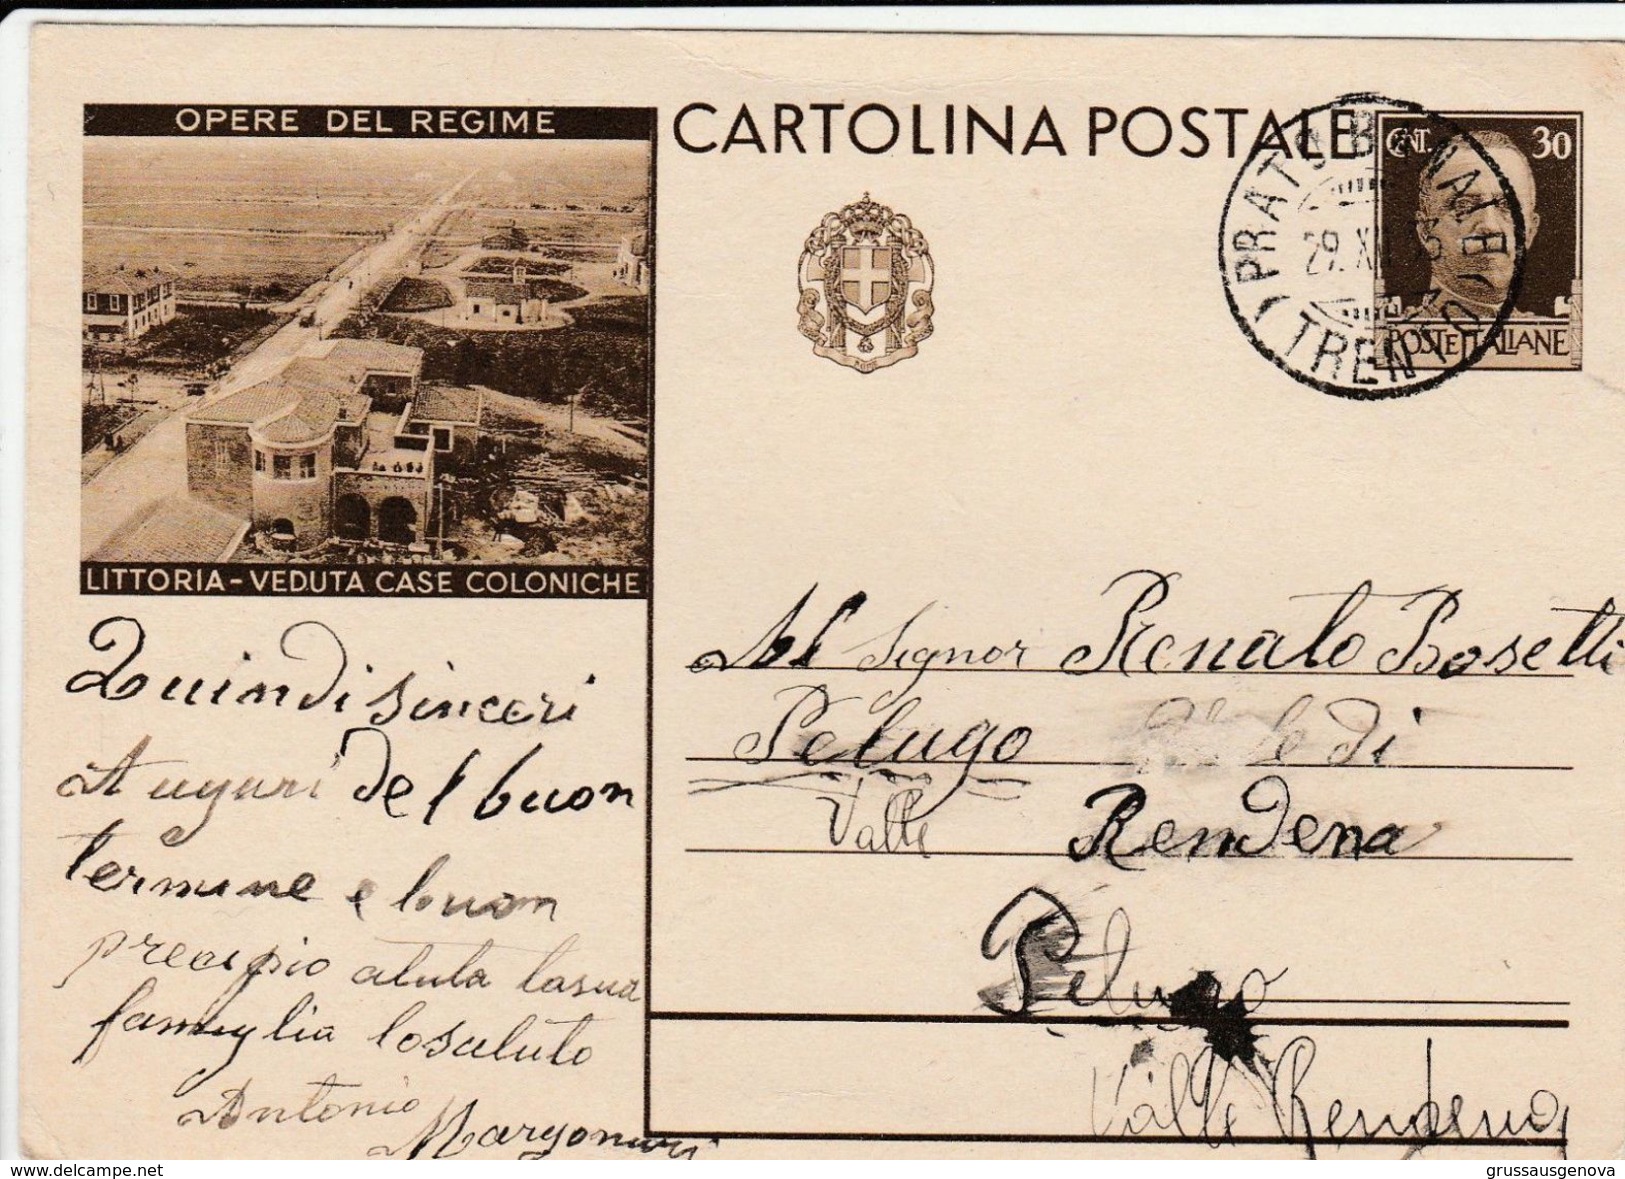 OPERE DEL REGIME
CARTOLINA POSTALE
CENT. 30
29. XII
(TRENTO)
POSTE ITALIANE
LITTORIA - VEDUTA CASE COLONICHE
Al Signor Renato Bosetti
Pelugo di
Valle Rendena
Pelugo
Valle Rendena
Quindi sinceri
Auguri del buon
termine e buon
precipio atuta lasua
famiglia losaluto
Antonio
delcampe.net
grussausgenova